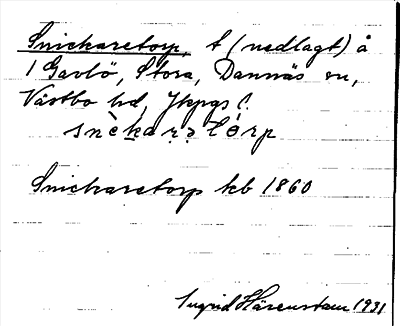 Snickaretorp, t (nedlagt) å
1 Gavlö, Stora, Dannäs sn,
Västbo hd, Jkpgs l.
snèkarə tórp
Snickaretorp kb 1860
Ingrid Härenstam 1931